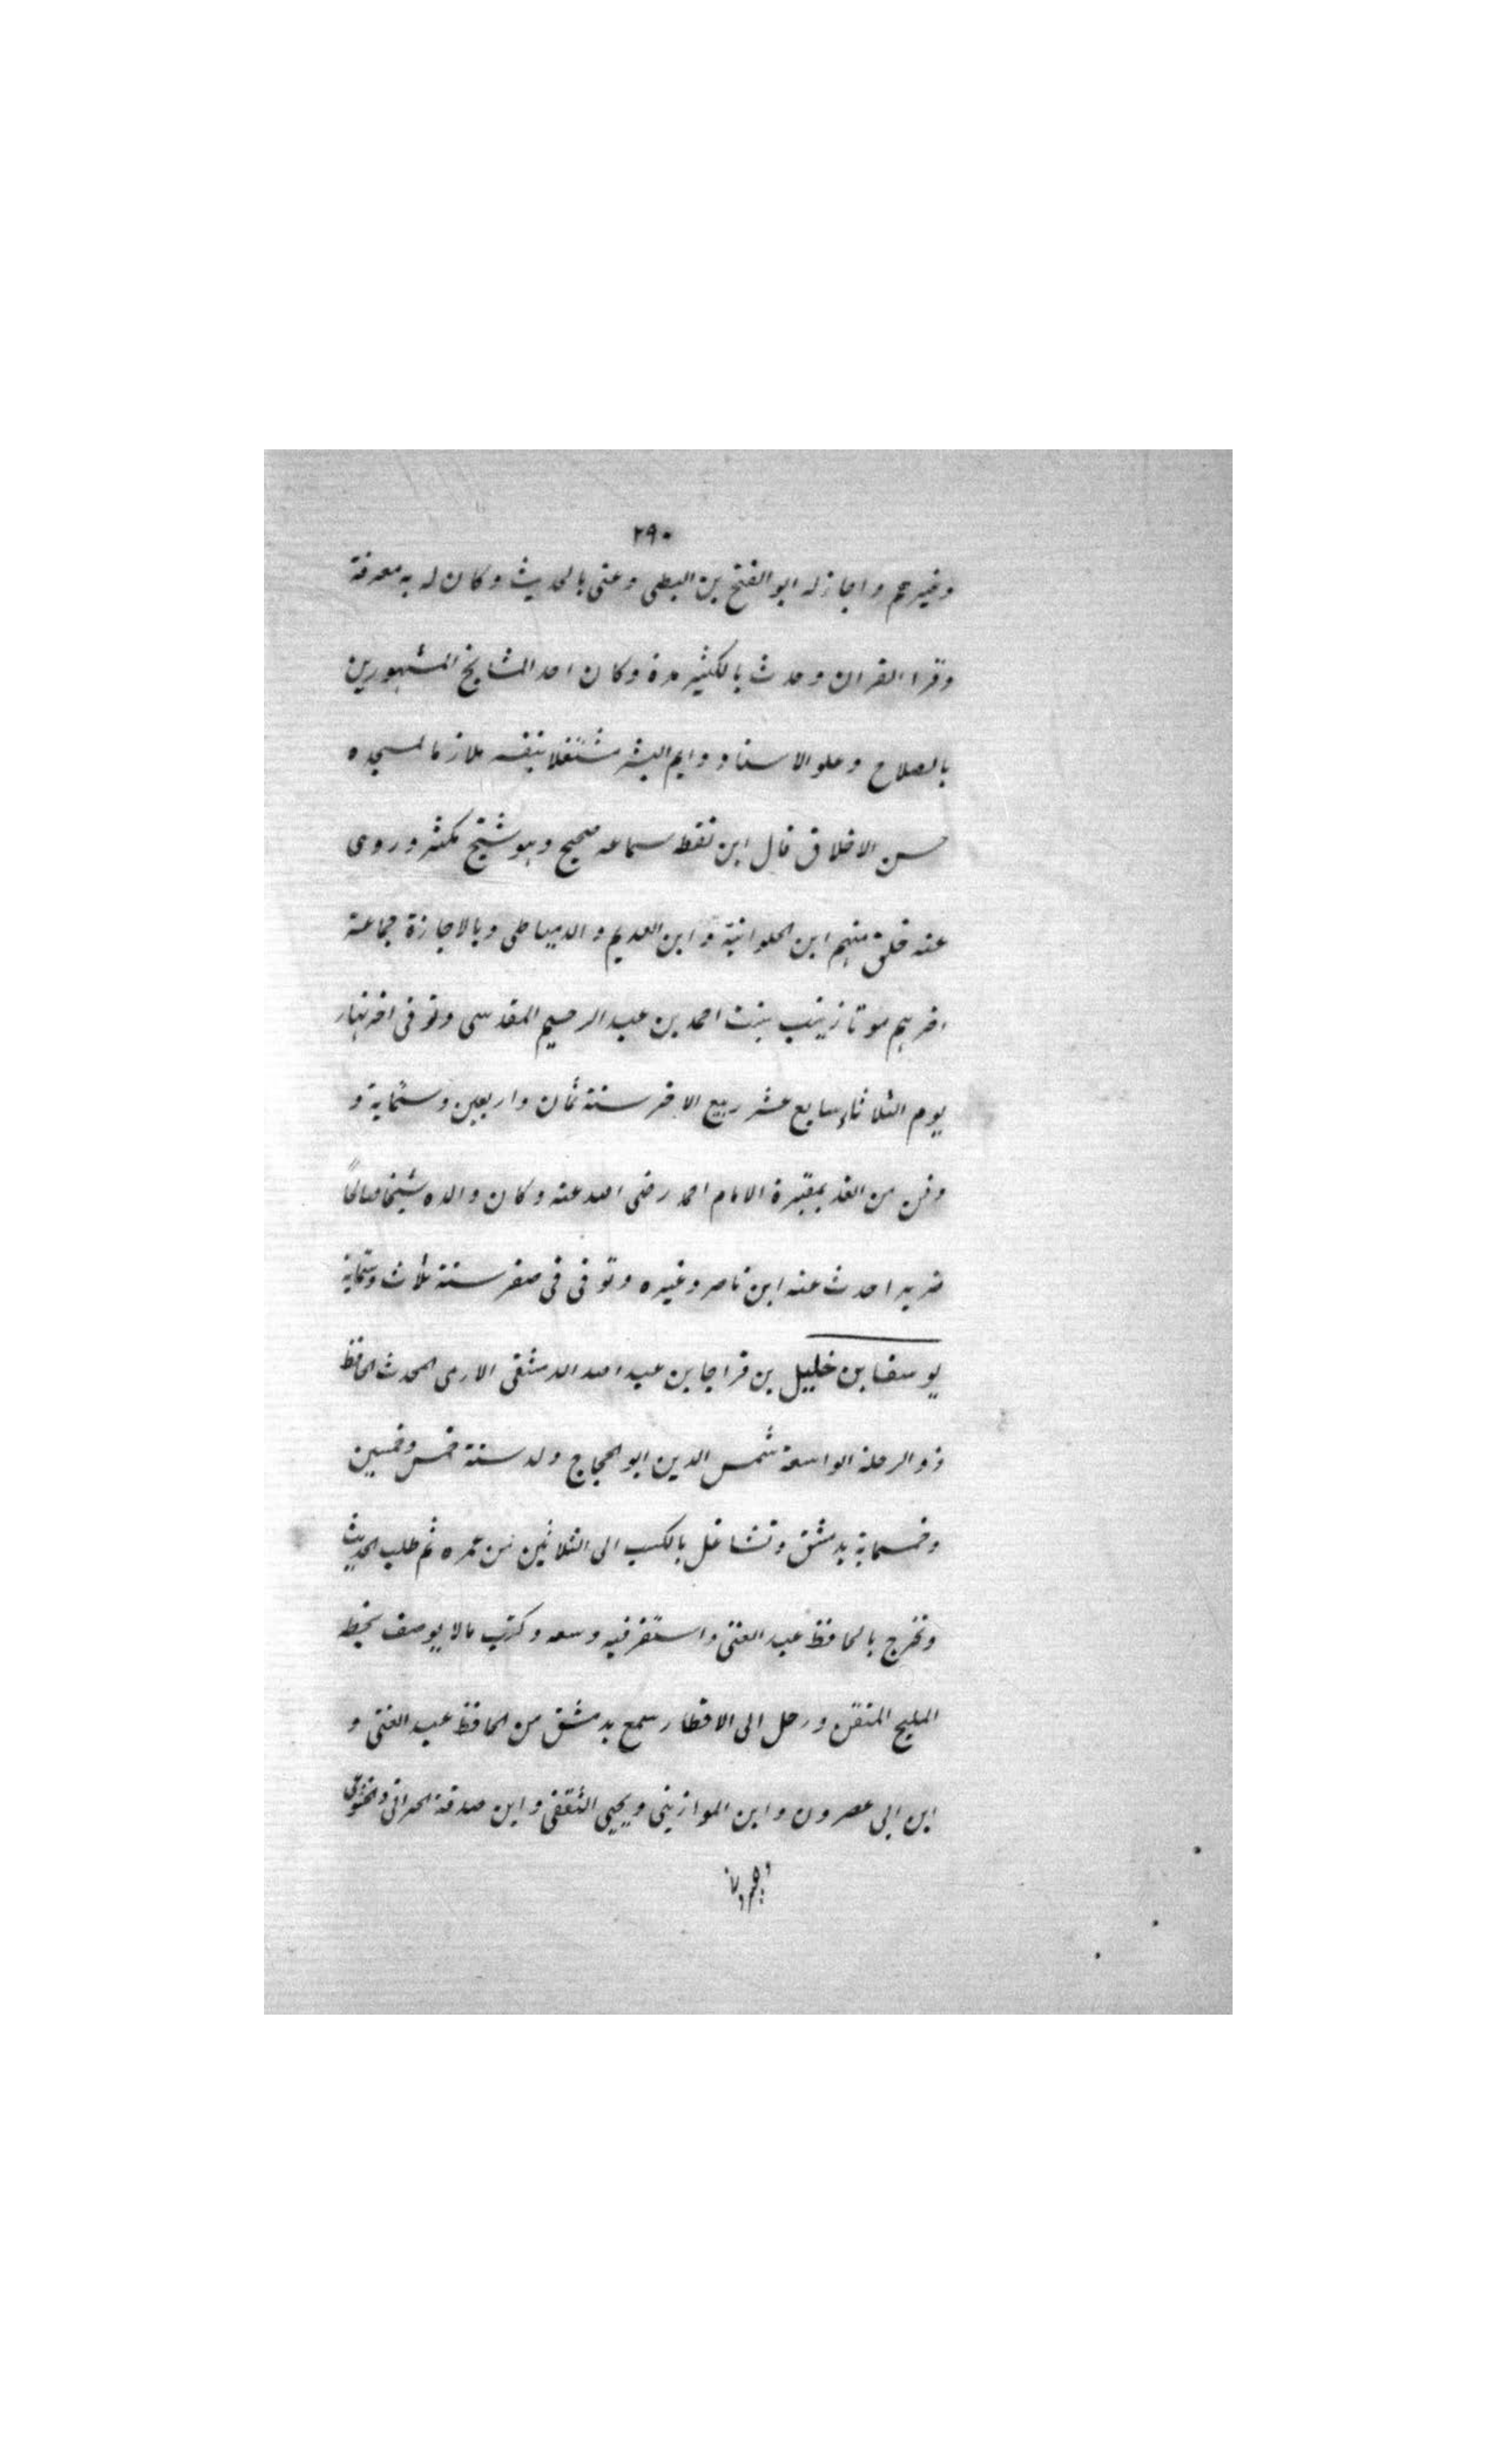 ٢٩٠
وغيرهم واجاز له ابو الفتح بن البطى وعنى بالحديث وكان له به معرفة
وقرا القران وحدث بالكثير مدة وكان احد المشايخ المشهورين
بالصلاح وعلو الاسناد دايم البشر مشتغلا بنفسه ملازما لمسجده
حسن الاخلاق قال ابن نقطه سماعه صحيح وهو شيخ مكثر وروى
عنه خلق منهم ابن الحلوانية وابن العديم والدمياطى وبالاجازة جماعة
اخرهم موتا زينب بنت احمد بن عبد الرحيم المقدسى وتوفى اخر نهار
يوم الثلاثاء سابع عشر ربيع الاخر سنة ثمان واربعين وستماية و
دفن من الغد بمقبرة الامام احمد رضى الله عنه وكان والده شيخا صالحًا
ضريرا حدث عنه ابن ناصر وغيره وتوفى فى صفر سنة ثلاث وستماية
يوسف بن خليل بن قراجا بن عبد الله الدمشقى الادمى المحدث الحافظ
ذو الرحلة الواسعة شمس الدين ابو الحجاج ولد سنة خمس وخمسين
وخمسماية بدمشق وتشاغل بالكسب الى الثلاثين من عمره ثم طلب الحديث
وتخرج بالحافظ عبد الغنى واستفرغ فيه وسعه وكتب مالا يوصف بخطه
المليح المتقن ورحل الى الاقطار سمع بدمشق من الحافظ عبد الغنى و
ابن ابى عصرون وابن الموازينى ويحيى الثقفى وابن صدقة الحرانى والخشوعى